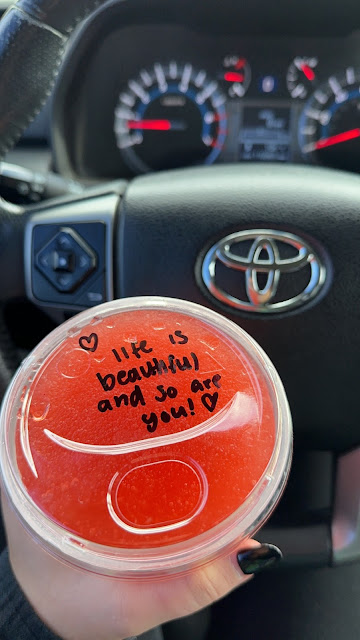 ♡ life is
beautiful
and so are
you! ♡